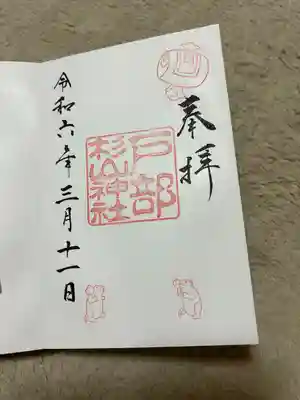 奉拝
戸部
杉山神社
令和六年三月十一日